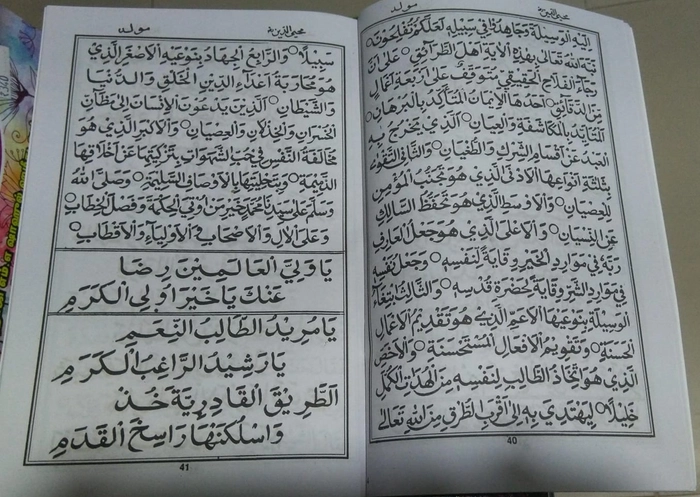 محيي الدين
مولد
اليه الوسيلة وجاهدوا في سبيله لعلكم تفلحون
نبه الله تعالى بهذه الاية اهل الطرائق على ان
رجاء الفلاح الحقيقي متوقف على اربعة اعمال
من الدقائق احدها الايمان المتأكد بالبرهان
المتأيد بالمكاشفة والعيان الذي يخرج به
العبد عن اقسام الشرك والطغيان والثاني التقوى
بثلثة انواعها الادنى الذي هو تجنب المؤمن
للعصيان والاوسط الذي هو تحفظ السالك
عن النسيان والاعلى الذي هو جعل العارف
ربه في موارد الخير وقاية لنفسه وجعل نفسه
في موارد الشر وقاية لحضرة قدسه والثالث ابتغاء
الوسيلة بنوعيها الاعم الذي هو تقديم الاعمال
الحسنة وتقويم الافعال المستحسنة والاخص
الذي هو اتخاذ الطالب لنفسه من الهداة الكمل
خليلا ليهتدي به الى اقرب الطرق من الله تعالى
40
محيي الدين
مولد
سبيلا والرابع الجهاد بنوعيه الاصغر الذي
هو محاربة اعداء الدين الخلق والدنيا
والشيطان الذين يدعون الانسان الى مظان
الخسران والخذلان والعصيان والاكبر الذي هو
مخالفة النفس في حب الشهوات بتزكيتها عن اخلاقها
الذميمة وبتحليتها بالاوصاف السليمة وصلى الله
وسلم على سيدنا محمد خير من اوتي الحكمة وفصل الخطاب
وعلى الال والاصحاب والاولياء والاقطاب
يا ولي العالمين رضا
عنك يا خير اولي الكرم
يا مريد الطالب النعم
يا رشيد الراغب الكرم
الطريق القادرية خذ
واسلكنها راسخ القدم
41